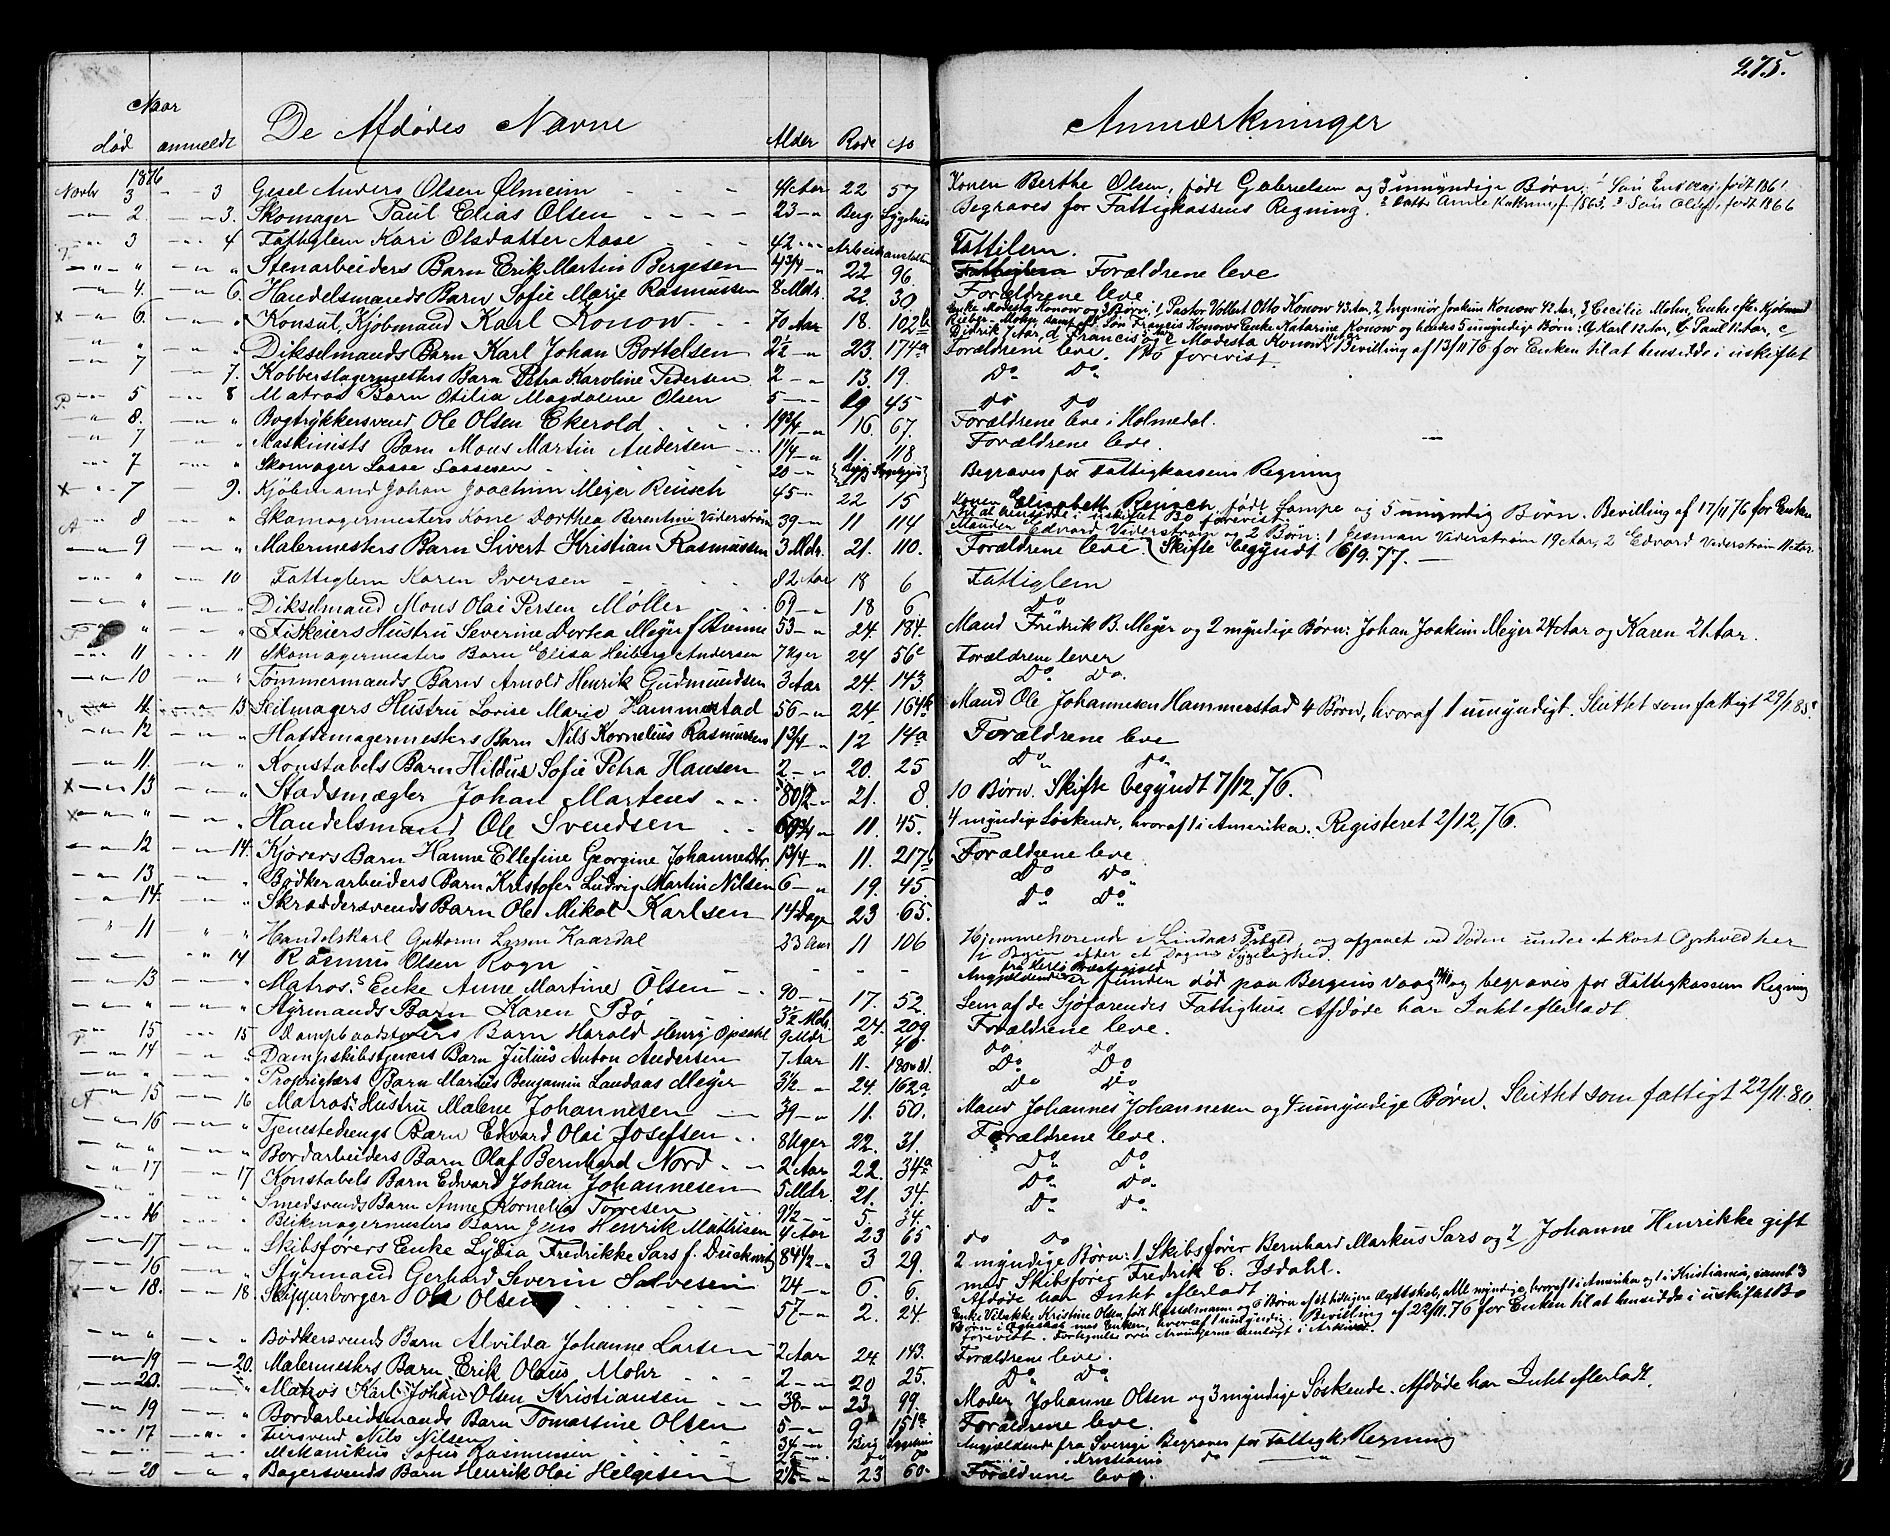 275.
Naar
død anmeldt De Afdødes Navne Alder Rode No Anmærkninger
1876
Novbr 3 - - 3 Gesel Anders Olsen Ølmeim 41 Aar 22 57 Konen Berthe Olsen, født Gabrielsen og 3 umyndige Børn: 1 Søn født 1861
2. 3. Skomager Paul Elias Olsen 23 Berg. Sygehus Begraves for Fattigkassens Regning. 2 Datter f 1863, 3 Søn Oluf, født 1866
3 4 Fattiglem Kari Olsdatter Aase 42 Arbeidsanstalten Fattilem.
" " Stenarbeiders Barn Erik Martin Bergesen 4 3/4 22 96 Forældrene leve
4. 6. Handelsmands Barn Sofie Marie Rasmussen 8 Mdr. 22. 30 Forældrene leve
x 6. " Konsul, Kjøbmand Karl Konow 70 Aar 18. 102b Enke Modesta Konow og 3 Børn, 1 Pastor Vollert Otto Konow 43 Aar, 2 Ingeniør Joakim Konow 42 Aar, 3 Cecilie Mohn, Enke efter Kjøbmand
Mohn samt afd. Søn Francis Konows Enke Katarine Konow og hendes 5 umyndige Børn: a Karl 12 Aar, b Paul 11 Aar, c
Didrik 7 Aar, d Francis og e Modesta Konow. Bevilling af 13/11 76 for Enken til at hensidde i uskiftet
" " Dikselmands Barn Karl Johan Bottelsen 2 1/2 23. 174a Forældrene leve. Bo forevist.
7 7. Kobberslagermesters Barn Petra Karoline Pedersen 2 13. 19. Do Do
P. 5 8 Matros Barn Otilia Magdalene Olsen 5 19 45 Do Do
8. " Bogtrykkersvend Ole Olsen Ekerold 19 3/4 16. 67. Forældrene leve i Holmedal.
7 " Maskinists Barn Mons Martin Andersen 1 1/4 11. 118 Forældrene leve.
7 " Skomager Lasse Lassesen 20 Begraves for Fattigkassens Regning
x 7 9. Kjøbmand Johan Joachim Meyer Reusch 45 22 15 Konen Elisabeth Reusch, født Lampe og 5 umyndig Børn. Bevilling af 17/11 76 for Enken
til at hensidde i uskiftet Bo forevist.
A 8 " Skomagermesters Kone Dorthea Berentine Viderstrøm 39 11 114 Manden Edvard Viderstrøm og 2 Børn: 1 Viderstrøm 19 Aar, 2 Edvard Viderstrøm 11 Aar.
9 " Malermesters Barn Sivert Kristian Rasmussen 3 Mdr. 21. 110. Forældrene leve. (Skifte begyndt 6/9. 77.
" 10 Fattiglem Karen Iversen 82 Aar 18 6 Fattiglem
" " Dikselmand Mons Olai Persen Møller 69 18 6 Do
" " Fiskeiers Hustru Severine Dortea Meyer f. 53 24. 184. Mand Fredrik B. Meyer og 2 myndige Børn: Johan Joakim Meyer 24 Aar og Karen 21 Aar.
11 11 Skomagermesters Barn Elisa Heiberg Andersen 7 Uger 24 56c Forældrene lever
10 " Tømmermands Barn Arnold Henrik Gudmundsen 3 Aar 24. 143. Do Do.
11. 13 Seilmagers Hustru Lovise Marie Hammerstad 56 24 164b Mand Ole Johannesen Hammerstad 4 Børn, hvoraf 1 umyndigt. Sluttet som fattigt 29/1. 85.
12 " Hattemagermesters Barn Nils Kornelius Rasmussen 1 3/4 12 14a Forældrene leve
11. " Konstabels Barn Hildus Sofie Petra Hansen 2 20. 25 Do Do
x 13 " Stadsmægler Johan Martens 80 1/2 21. 8. 10 Børn. Skifte begyndt 7/12. 76.
x " " Handelsmand Ole Svendsen 69 3/4 11. 45. 4 myndige Søskende, hvoraf 1 i Amerika. Registeret 2/12, 76.
12 14. Kjørers Barn Hanne Ellefine Georgine Johannesdtr. 1 3/4 11. 217b Forældrene leve
13 " Bødkerarbeiders Barn Kristofer Ludvig Martin Nilsen 6 19. 45. Do Do
14. " Skræddersvends Barn Ole Mikal Karlsen 14 Dage 23 65. Do Do
11 " Handelskarl Guttorm Larsen Kaardal 23 Aar 11 106 Hjemmehørende i Lindaas Prgjeld, og afgaaet ved Døden under et kort Ophold her
i Byen efter et Døgns Sygelighed.
14 Rasmus Olsen Rogn - - - fra Præstegjeld
Angjældende er funden død paa Bergens Vaag og begraves for Fattigkassens Regning
13 " Matros's Enke Anne Martine Olsen 90 17. 52. Lem af de Sjøfarendes Fattighus. Afdøde har Intet efterladt.
" " Styrmands Barn Karen Bø 3 1/2 Mdr. 24. 209 Forældrene leve.
15 15 Dampbaadsførers Barn Harald Henry Opdahl 9 Mdr 2 40. Do Do
14 " Dampskibstjeners Barn Julius Anton Andersen 7 Aar 11. Do Do
" " Proprietærs Barn Marius Benjamin Landaas Meyer 3 1/2 24. 162a Do Do
A 15 16 Matros's Hustru Malene Johannesen 39 11. 50. Mand Johannes Johannesen og 4 umyndige Børn. Sluttet som fattigt 22/11. 80.
16 " Tjenestedrengs Barn Edvard Olai Josefsen 8 Uger 22. 31. Forældrene leve.
" " Bordarbeiders Barn Olaf Bernhard Nord 2 Aar 22. 34a Do Do
17 17 Konstabels Barn Edvard Johan Johannesen 5 Mdr. 21. 34. Do Do
" " Smedsvends Barn Anne Kornelia Torresen 9 1/2 5. 34. Do Do
16 " Blikmagermesters Barn Jens Henrik Mathisen 4 Aar 23 65 Do Do
17. " Skibsførers Enke Lydia Fredrikke Sars f. Duckwitz 84 1/2 3 29. 2 myndige Børn: 1 Skibsfører Bernhard Markus Sars og 2 Johanne Henrikke gift
med Skibsfører Fredrik C. Isdahl.
16 " Styrmand Gerhard Severin Salvesen 24 6. 6. Afdøde har Intet efterladt
18. 18 Skipperborger Ole Olsen 57 2. 24. Enke Kristine Olsen, født og 5 Børn af et tidligere Ægteskab, alle myndige, hvoraf 1 i Amerika og 1 i Kristiania, samt 3
Børn i Ægteskab med Enken, hvoraf 1 umyndig. Bevilling af 22/11. 76 for Enken til at hensidde i uskiftet Bo
forevist. Fortegnelse over Arvingerne henlagt i Arkivet.
" " Bødkersvends Barn Alvilda Johanne Larsen 2 Aar 24. 143. Forældrene leve.
19 20. Malermesters Barn Erik Olaus Mohr 2 20 25. Do Do
20. " Matros Karl Johan Olsen Kristiansen 38 23 99. Moder Johanne Olsen og 3 myndige Søskende. Afdøde har Intet efterladt.
19 " Bordarbeidsmands Barn Tomastine Olsen 5 9 151a Forældrene leve.
17 " Nils Nilsen 34 Berg Sygehus Angjældende fra Sverige Begraves for Fattigk. Regning
" " Mekanikus Sofus Rasmussen 25 Do Do Kristiania Do
20 " Bagersvends Barn Henrik Olai Helgesen 2 1/2 23 60. Forældrene leve.